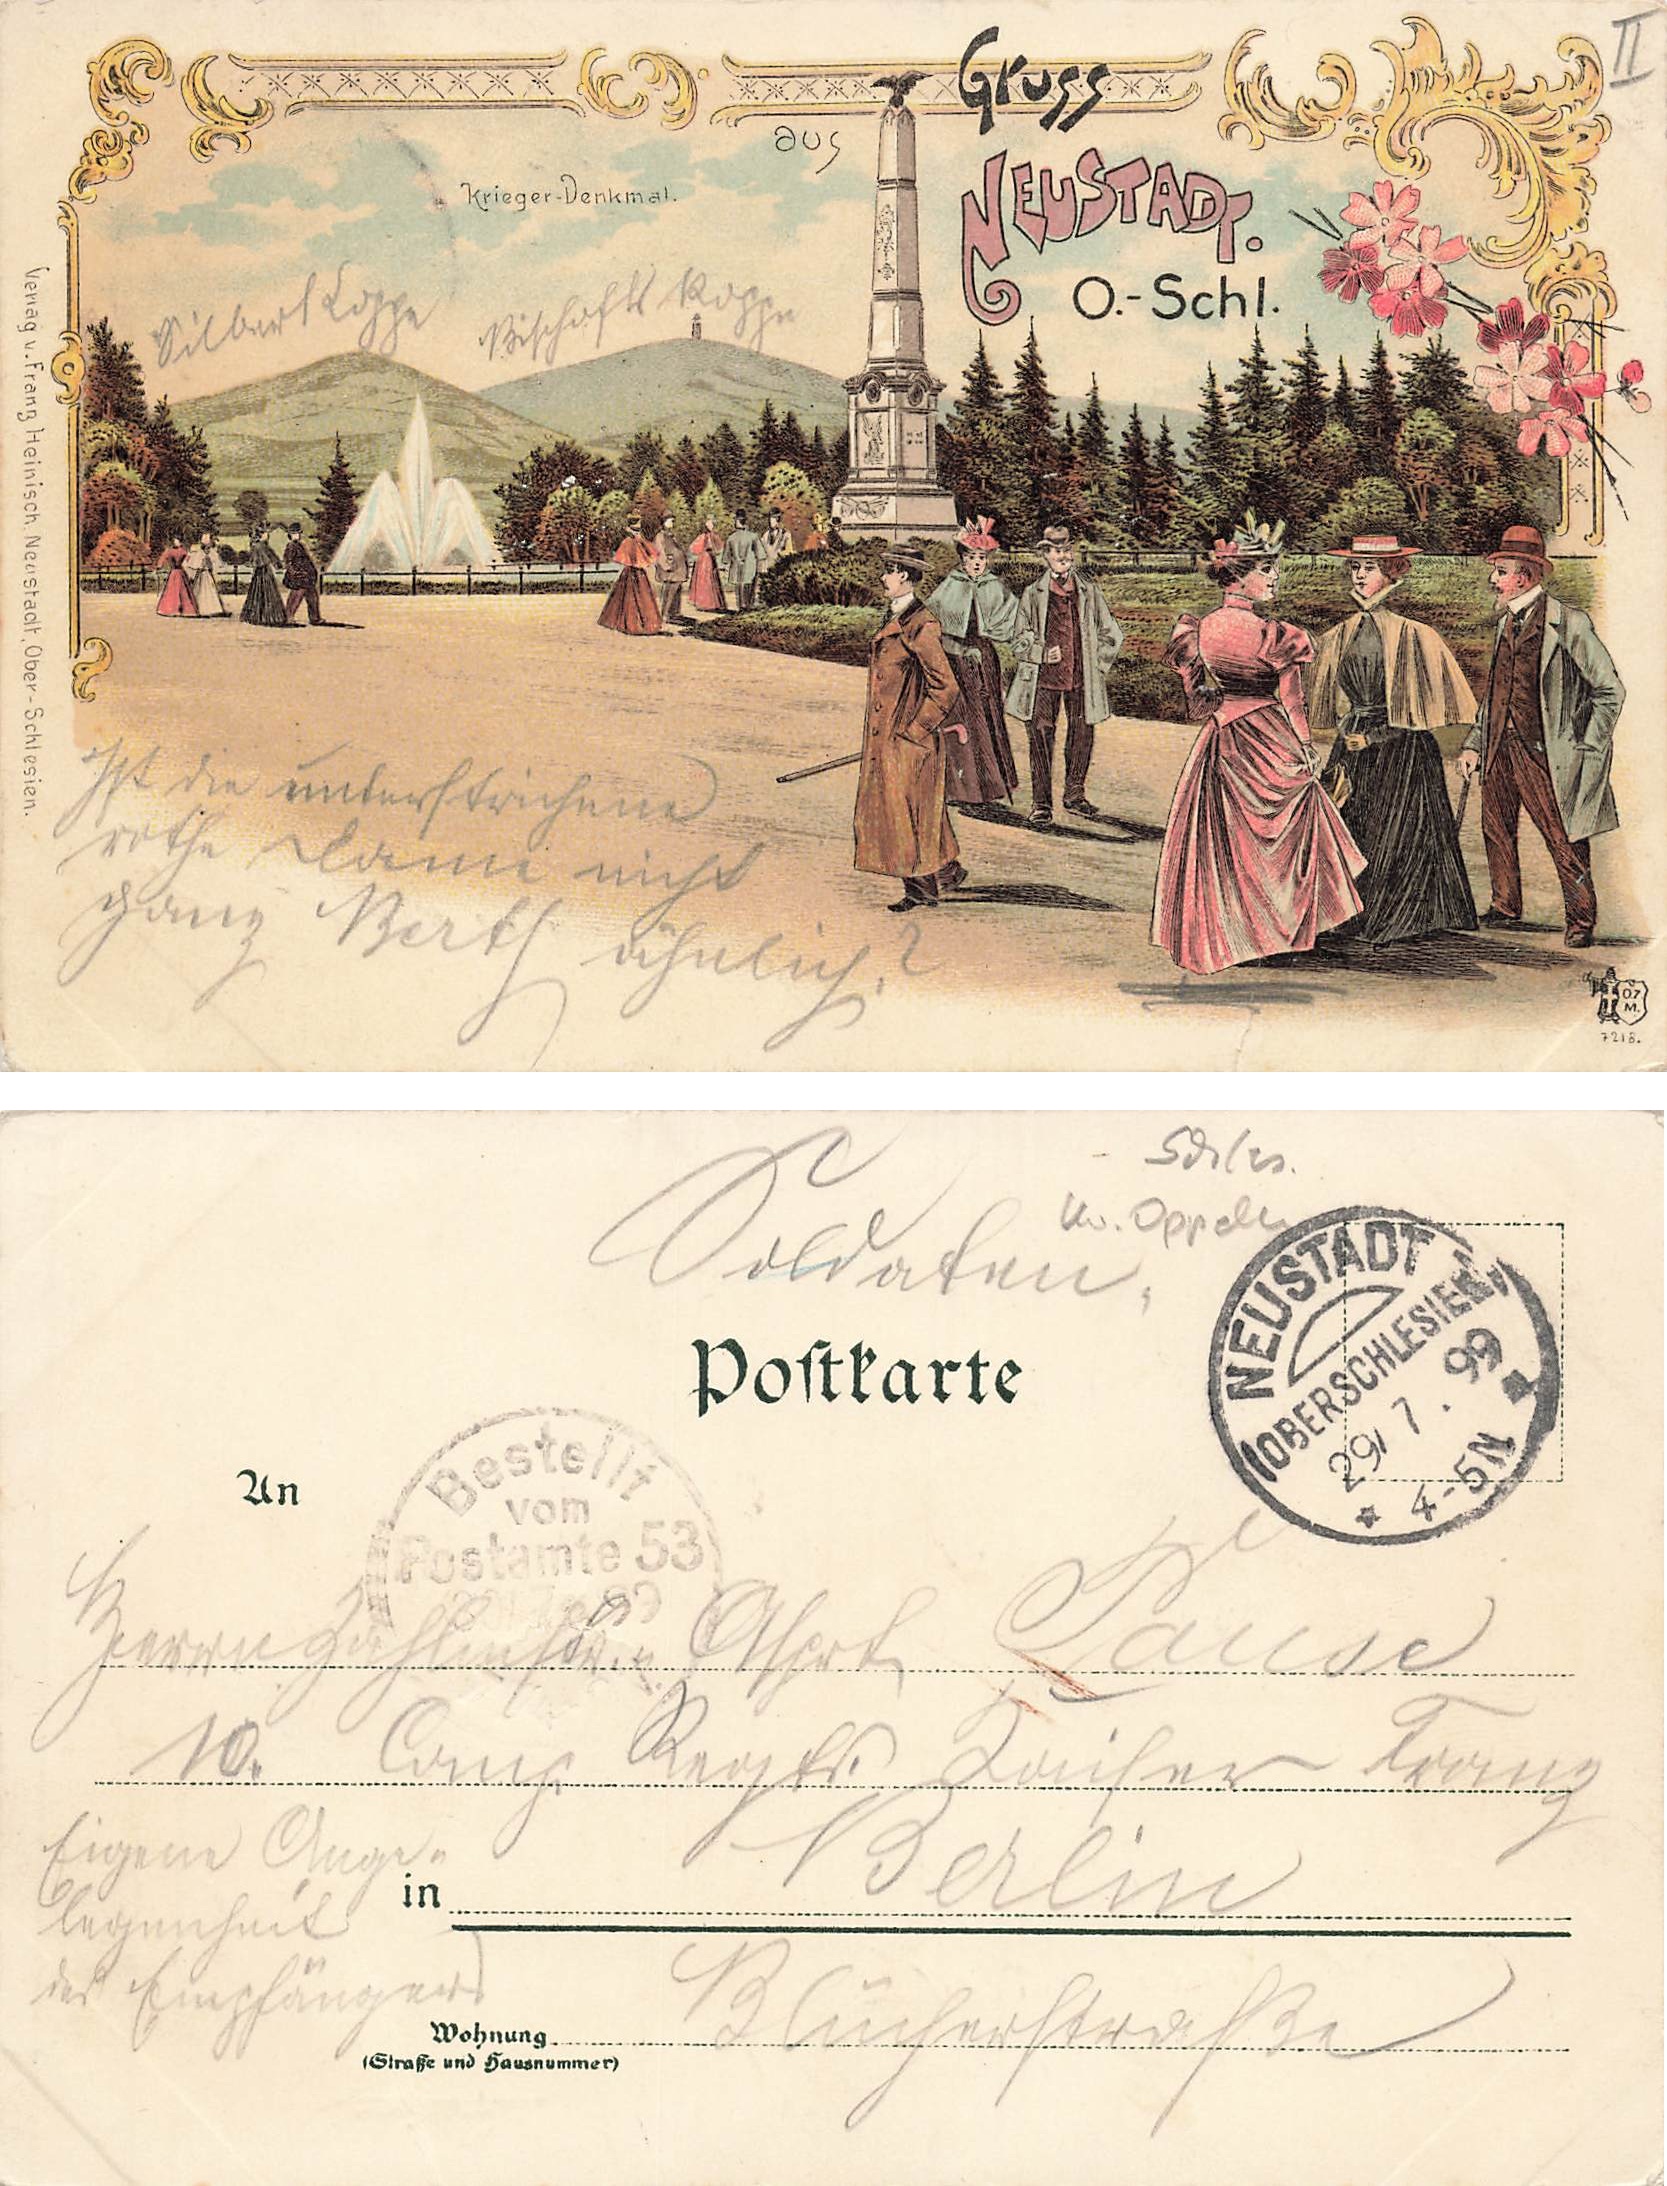 II
Gruss
aus
NEUSTADT.
O.-Schl.
Krieger-Denkmal.
Silberkoppe
Bischofskoppe
Verlag v. Franz Heinisch, Neustadt, Ober-Schlesien.
Ist die unterstrichene
rothe Dame nicht
ganz Berth ähnlich?
O.Z.M.
7218.
Schles.
Kr. Oppeln
Soldaten,
Postkarte
NEUSTADT
(OBERSCHLESIEN)
29/7.99
4-5N
Bestellt
vom
Postamte 53
99
An
Herrn Zahlmstr. Aspt. Pause
10. Comp. Regts. Kaiser Franz
Eigene Ange-
legenheit
des Empfängers
in Berlin
Blücherstraße
Wohnung
(Straße und Hausnummer)